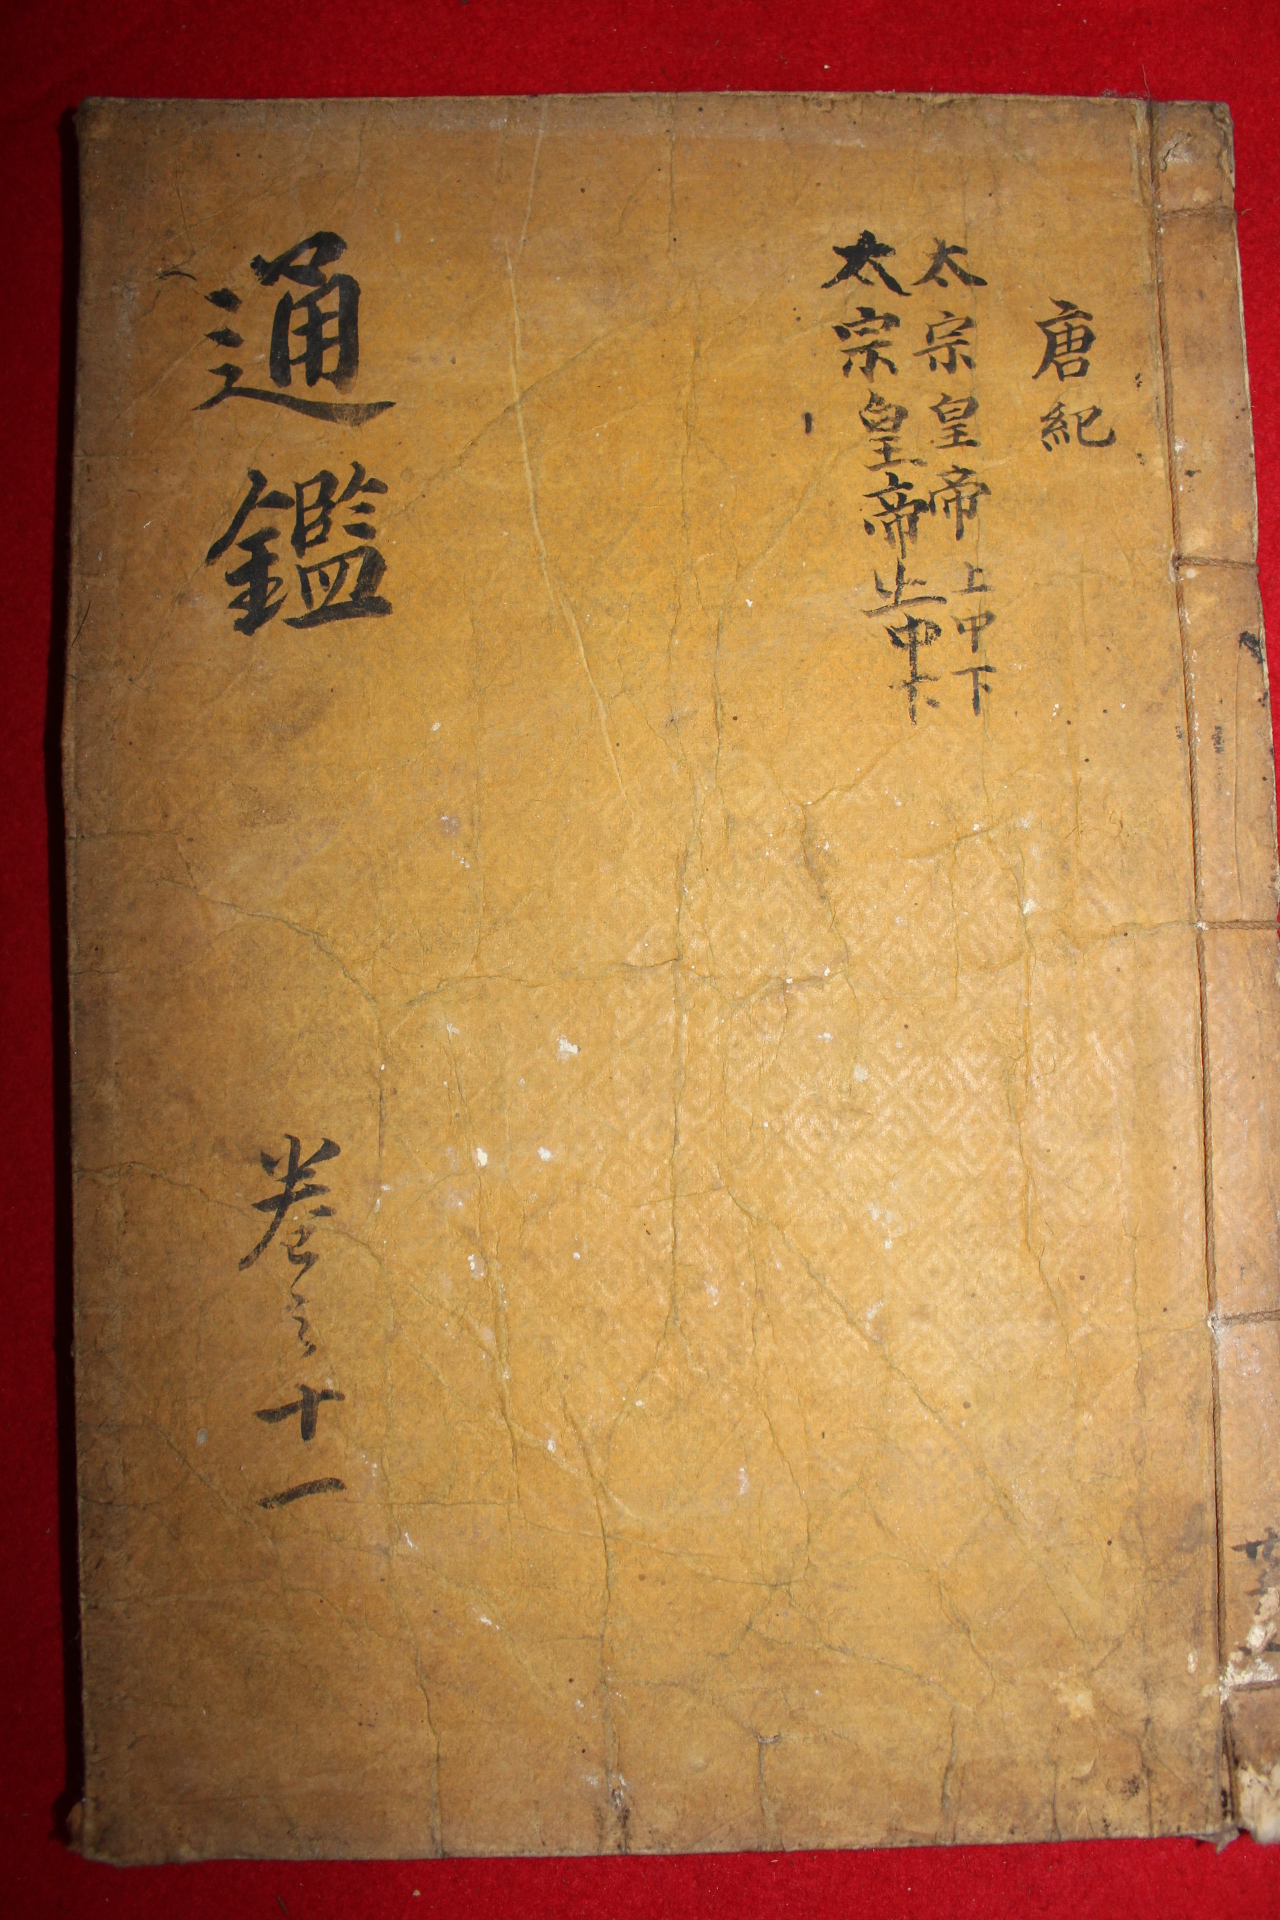 唐紀
太宗皇帝上中下
太宗皇帝上中下
通鑑
卷之十一